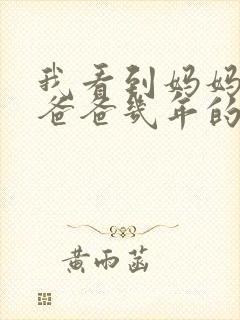 我看到妈妈
爸爸几年的
黄雨菡